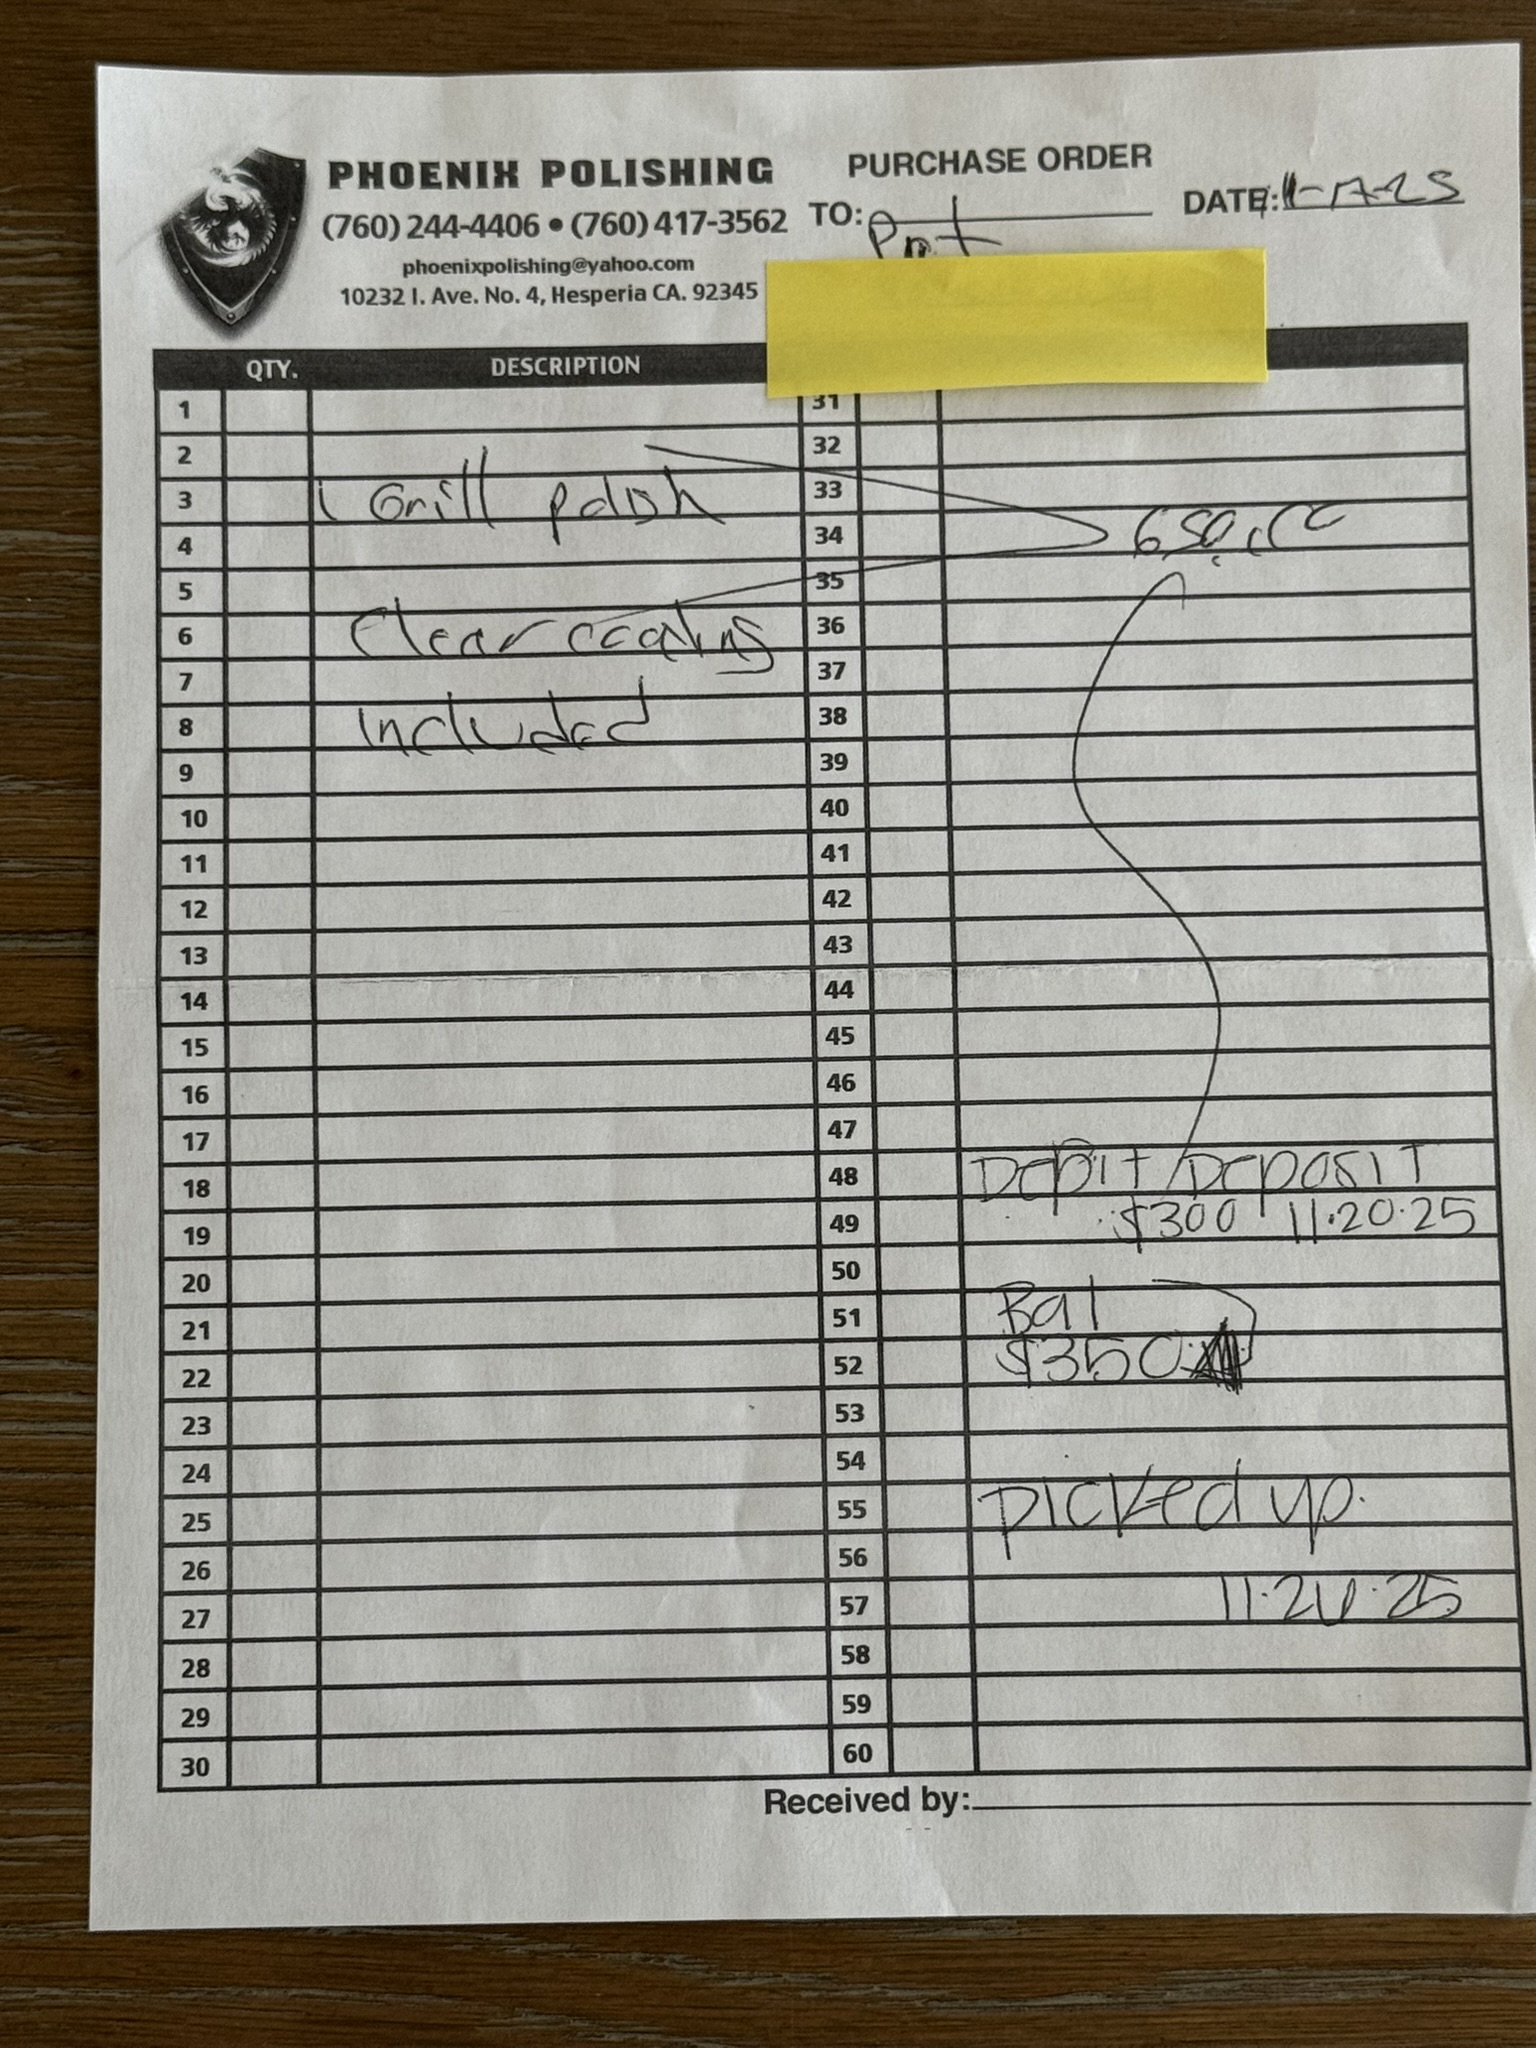 PHOENIX POLISHING
(760) 244-4406 • (760) 417-3562
phoenixpolishing@yahoo.com
10232 I. Ave. No. 4, Hesperia CA. 92345
PURCHASE ORDER
TO:
DATE: 11-17-25
QTY. DESCRIPTION
1 31
2 32
3 1 Grill polish 33
4 34 650.00
5 35
6 Clear coating 36
7 37
8 included 38
9 39
10 40
11 41
12 42
13 43
14 44
15 45
16 46
17 47
18 48 Debit/Deposit
19 49 $300 11·20·25
20 50
21 51 Bal
22 52 $350
23 53
24 54
25 55 picked up
26 56
27 57 11·20·25
28 58
29 59
30 60
Received by: